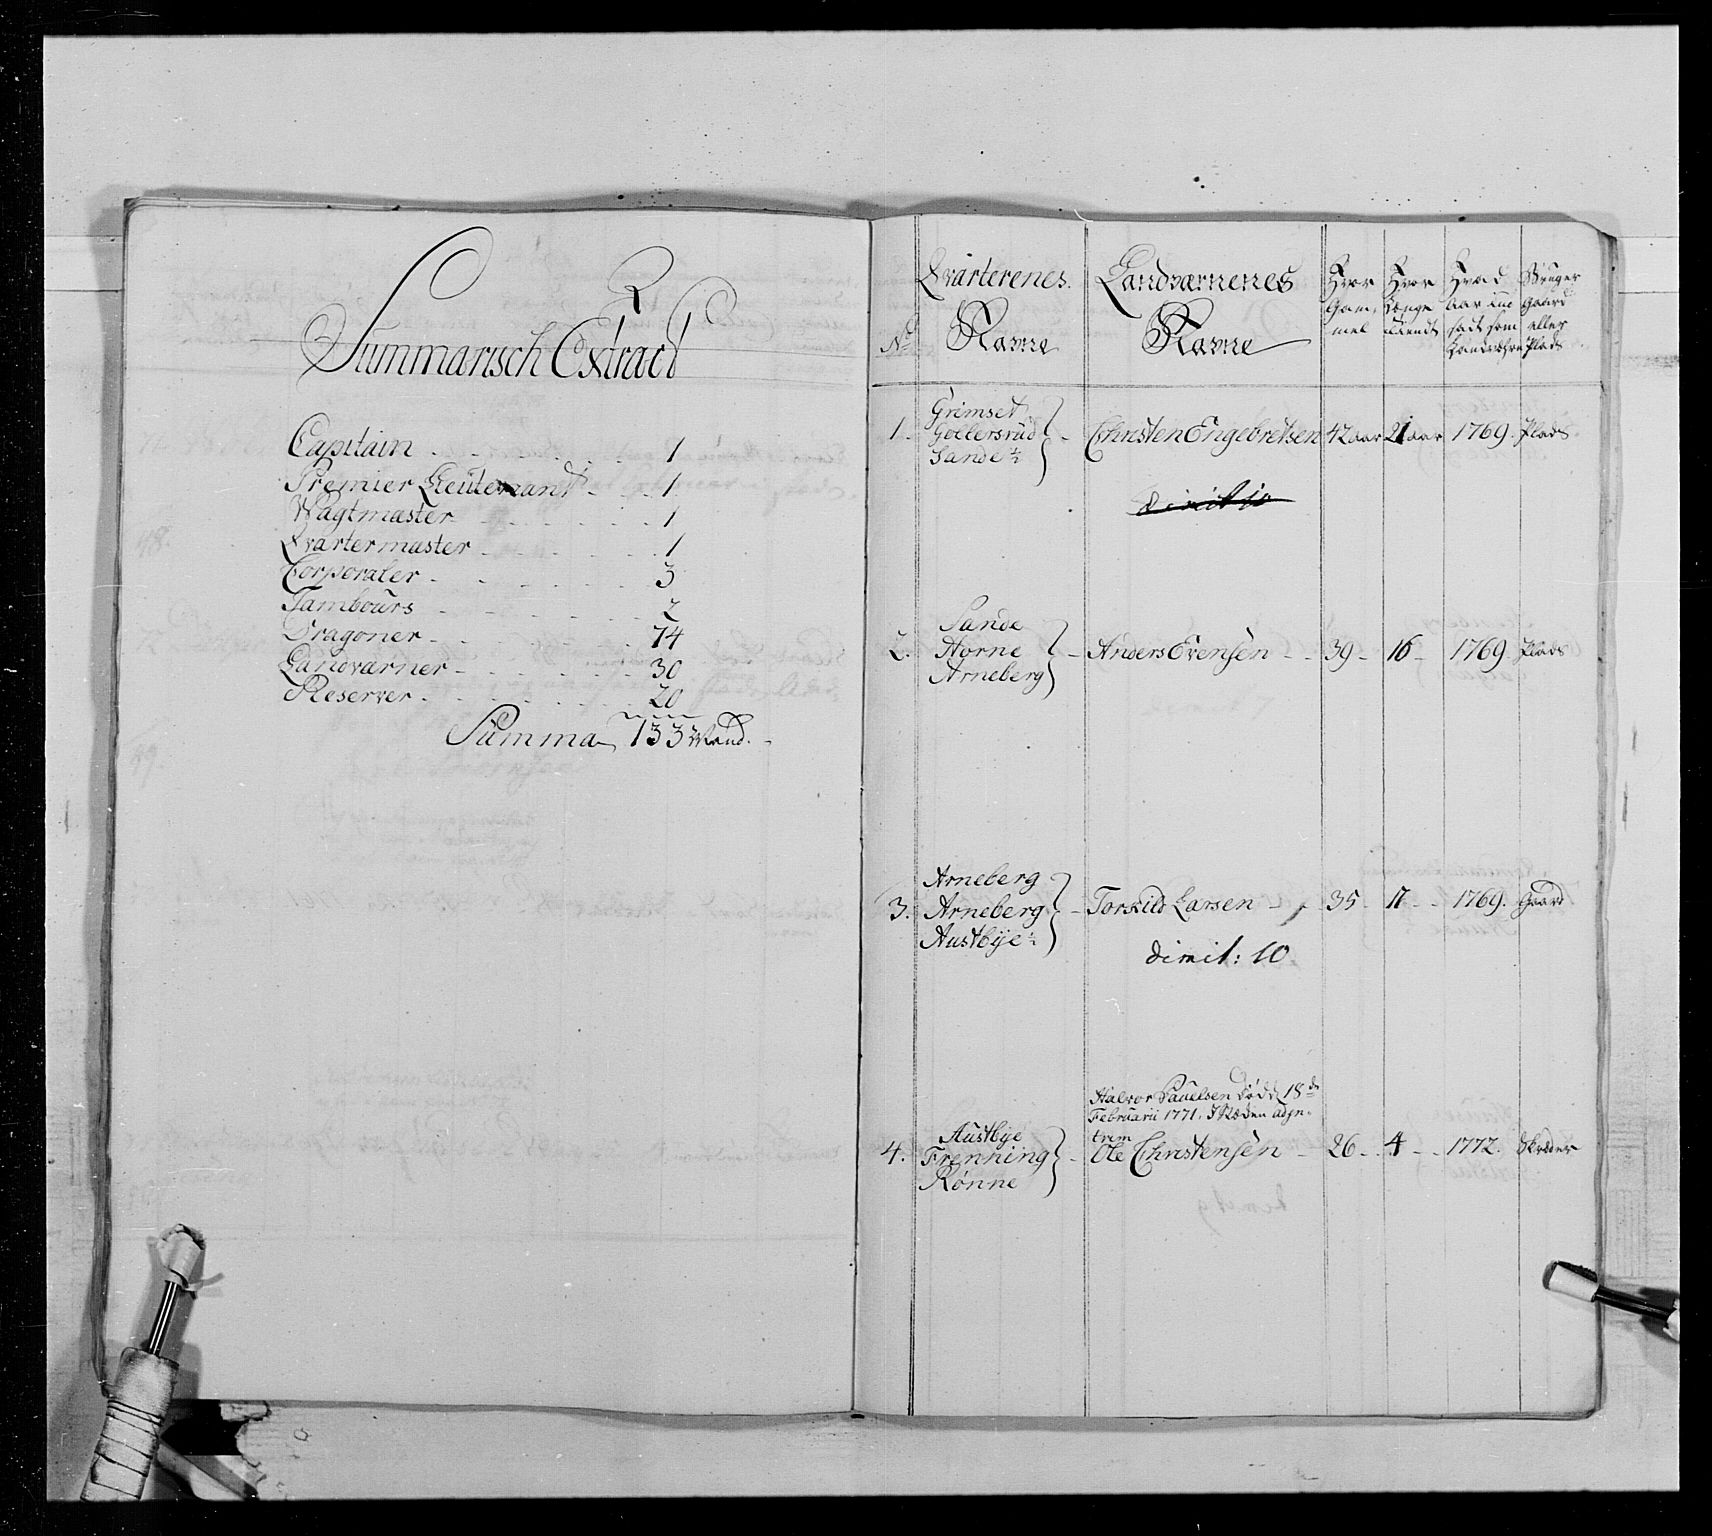 Summarisch Extract
Capitain 1
Premier Lieutenant 1
Wagtmæster 1
Qvartermæster 1
Corporaler 3
Tambours 2
Dragoner 74
Landværner 30
Reserver 20
Summa 133 Mand.
No
Qvarterenes Navne
Landværnenes Navne
Hvor Gammel
Hvor Længe tient
Hvad Aar indsadt som Landværn
Bruger Gaard eller Plads
1. Grimset
Gollersrud
Sande ½
Christen Engebretsen 42 aar 21 aar 1769. Plads
2. Sande
Horne
Arneberg
Anders Evensen 39 16 1769. Plads
3. Arneberg
Arneberg
Austbye ½
Torkild Larsen 35 11 1769. Gaard
dimit: 10
Halvor Paulsen Død d 18de
Februarii 1771. I Stæden adjn-
trem
4. Austbye
Frenning
Rönne
Ole Christensen 26 4 1772.